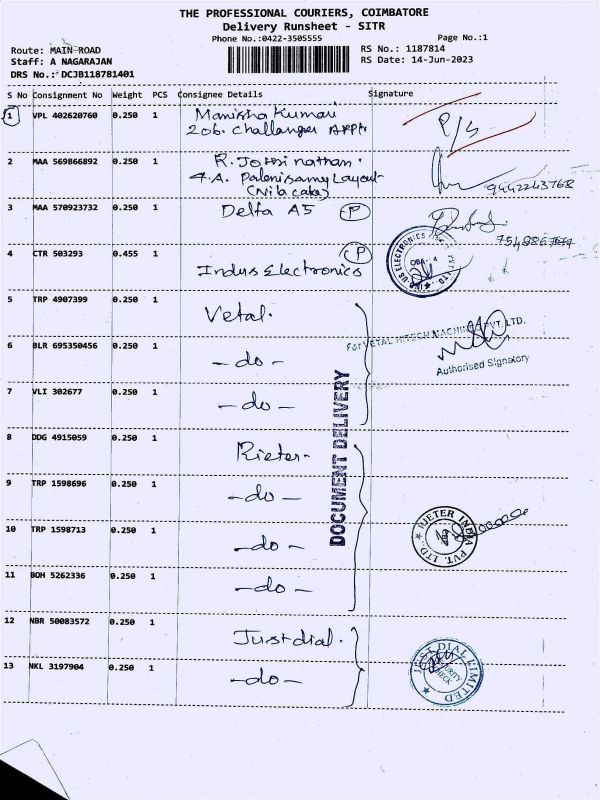 THE PROFESSIONAL COURIERS, COIMBATORE
Delivery Runsheet - SITR
Phone No.:0422-3505555
Page No.:1
Route: MAIN ROAD
RS No.: 1187814
Staff: A NAGARAJAN
RS Date: 14-Jun-2023
DRS No.: DCJB118781401
S No Consignment No Weight PCS Consignee Details Signature
1 VPL 402620760 0.250 1 Manisha Kumari
206. Challanger APPt
2 MAA 569866892 0.250 1 R. Jothi nathan.
4.A. Palenisamy Layout
(Nila cake)
9442243768
3 MAA 570923732 0.250 1 Delta A5 (P)
4 CTR 503293 0.455 1 (P)
Indus Electronics
5 TRP 4907399 0.250 1 Vetal.
For VETAL HITECH MACHINES PVT. LTD.
6 BLR 695350456 0.250 1 -do-
Authorised Signatory
7 VLI 302677 0.250 1 -do-
DOCUMENT DELIVERY
8 DDG 4915059 0.250 1 Rieter-
9 TRP 1598696 0.250 1 -do-
10 TRP 1598713 0.250 1 -do-
RIETER INDIA PVT. LTD.
11 BOH 5262336 0.250 1 -do-
12 NBR 50083572 0.250 1 Justdial.
13 NKL 3197904 0.250 1 -do-
JUST DIAL LIMITED
SECURITY
CHECK